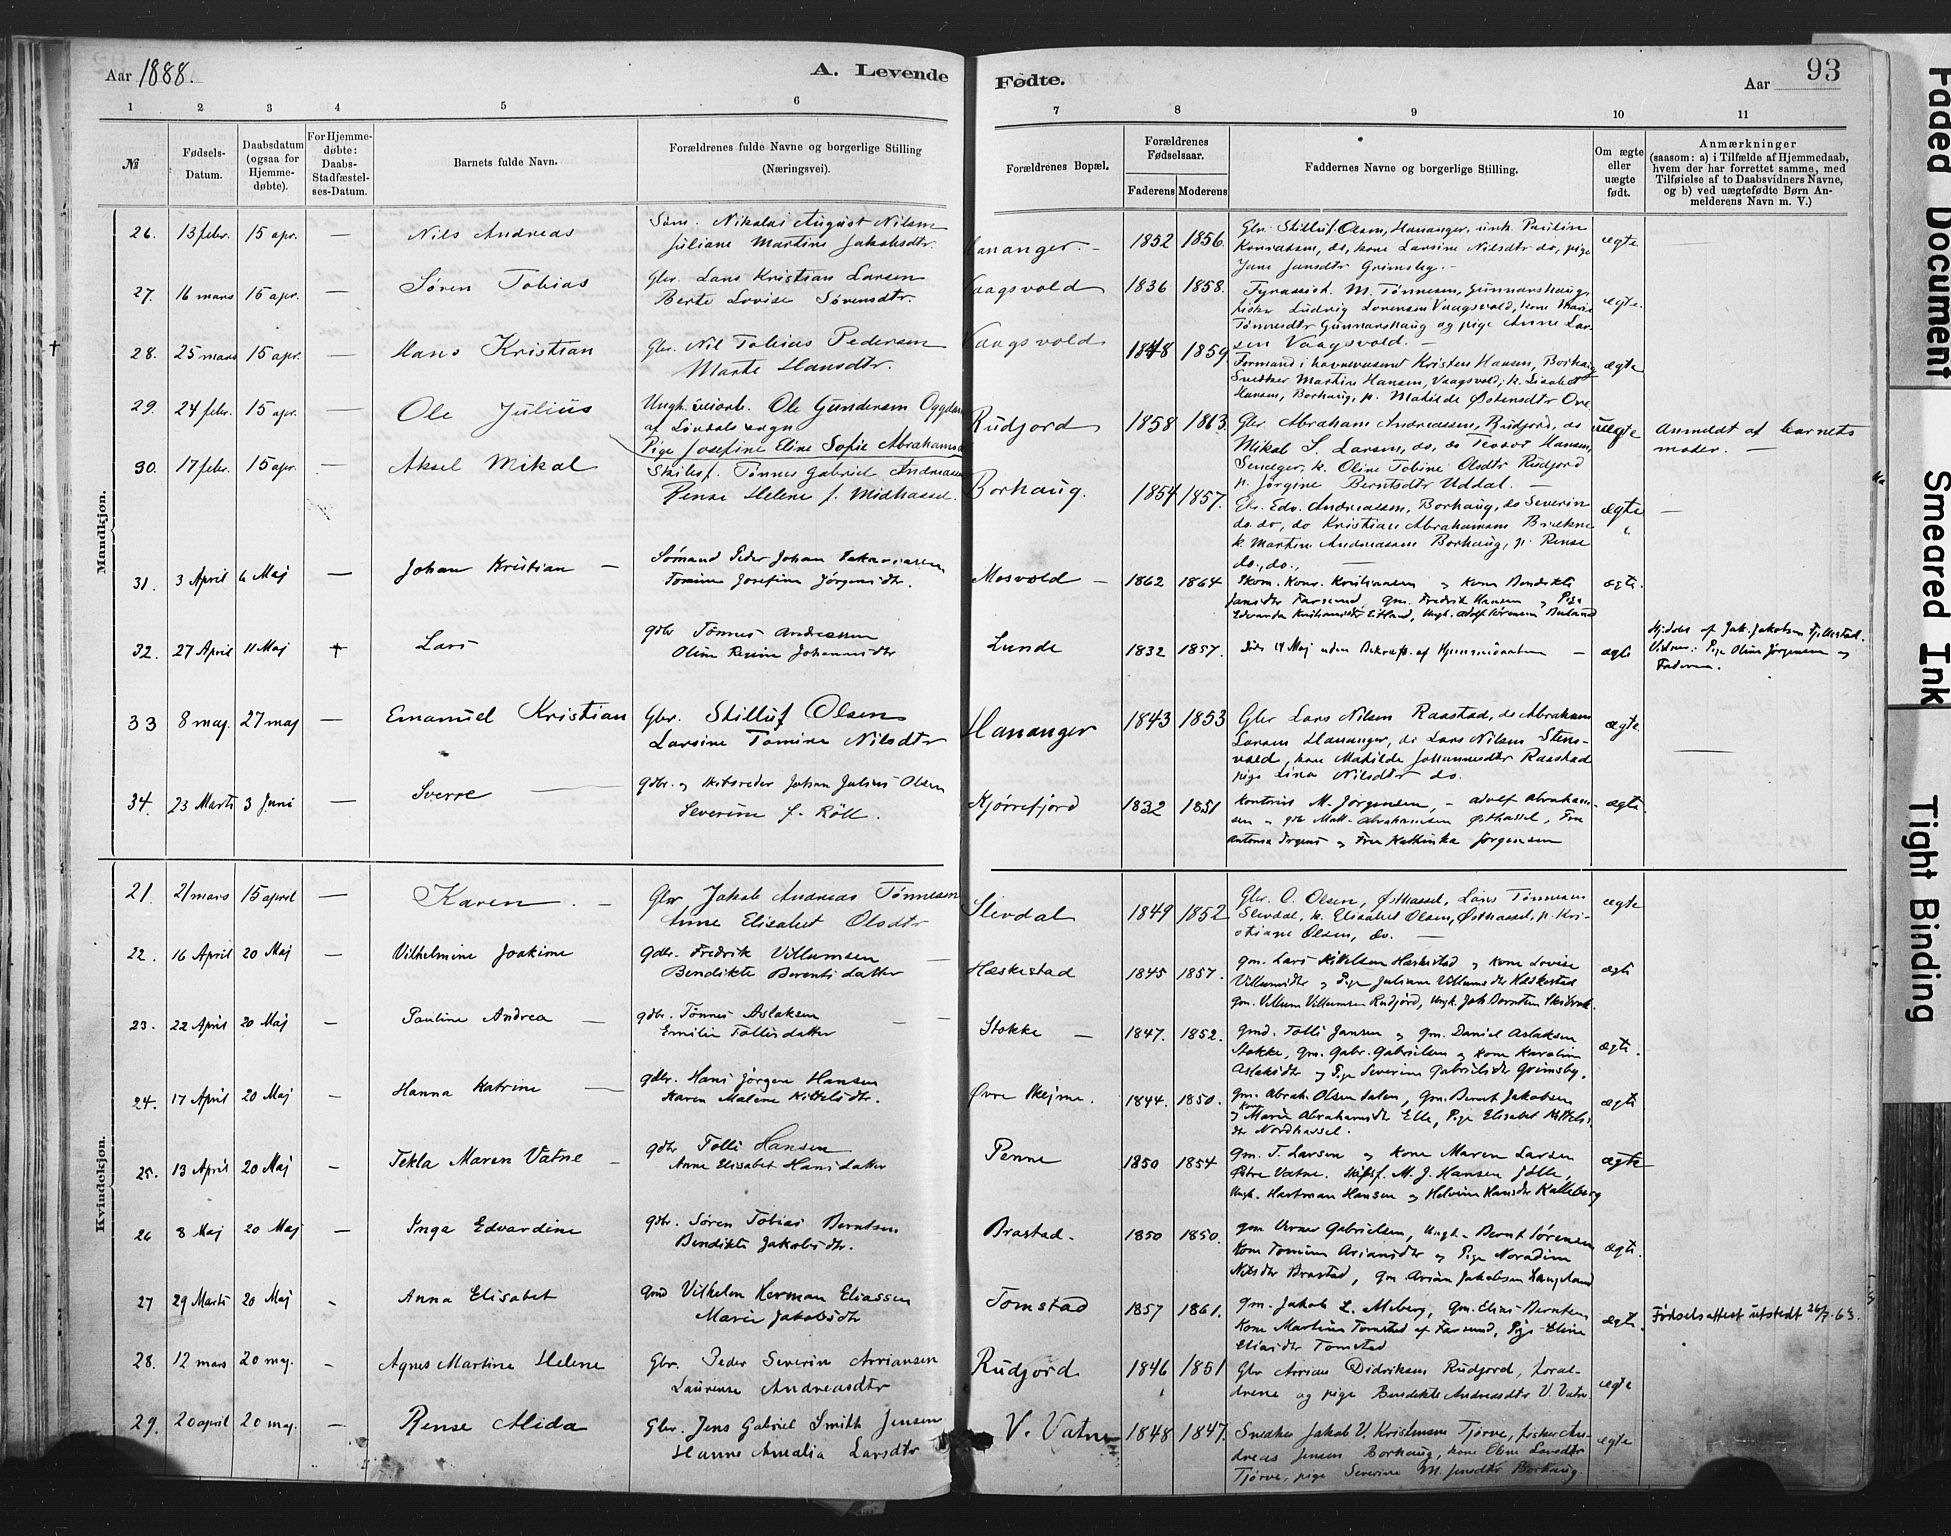 Aar 1888.
A. Levende
Fødte.
Aar
93
1 2 3 4 5 6 7 8 9 10 11
№
Fødsels-
Datum.
Daabsdatum
(ogsaa for
Hjemme-
døbte).
For Hjemme-
døbte:
Daabs-
Stadfæstel-
ses-Datum.
Barnets fulde Navn.
Forældrenes fulde Navne og borgerlige Stilling
(Næringsvei).
Forældrenes Bopæl.
Forældrenes
Fødselsaar.
Faderens Moderens
Faddernes Navne og borgerlige Stilling.
Om ægte
eller
uægte
født.
Anmærkninger
(saasom: a) i Tilfælde af Hjemmedaab,
hvem der har forrettet samme, med
Tilføielse af to Daabsvidners Navne,
og b) ved uægtefødte Børn An-
melderens Navn m. V.)
Mandkjøn.
26. 13 febr. 15 apr. — Nils Andreas
Nikolai August Nilsen
Juliane Martine Jakobsdtr.
Hananger — 1852 1856.
Gbr. Stilluf Olsen, Hananger,
do, kone Larsine Nilsdtr do, pige
Jansdtr Grimsby. —
ægte
27. 16 mars 15 apr. — Søren Tobias
Gbr. Lars Kristian Larsen
Berte Lovise Sørensdtr.
Vaagsvold 1836 1858.
M. Tønnesen, Gunnarshaug,
fisker Ludvig Lorensen Vaagsvold, kone
Tønnesdtr Gunnarshaug og pige Anne Lar-
sen Vaagsvold. —
ægte.
† 28. 25 mars 15 apr. — Hans Kristian
Gbr. Nil Tobias Pedersen
Marte Hansdtr.
Vaagsvold 1848 1859
Formand i havnevæsenet Kristen Hansen, Borhaug
Snedker Martin Hansen, Vaagsvold, k. Lisabet
Hansen, Borhaug, p. Matilde Østensdtr Ore
ægte
29. 24 febr. 15 apr. — Ole Julius
Ungk. Ole Gundersen
af Søndals sogn
Pige Josefine Eline Sofie Abrahamsd
Rudjord 1858 1863.
Gbr Abraham Andreassen, Rudjord, do
Mikal S. Larsen, do, do Teodor Hansen,
k. Oline Tobine Olsdtr Rudjord
p. Jørgine Berntsdtr Uddal. —
uægte
Anmeldt af barnets
moder. —
30. 17 febr. 15 apr. — Aksel Mikal
Skibsf. Tønnes Gabriel Andreasen
Rense Helene f. Midhassel.
Borhaug. 1854 1857.
Gbr. Edv. Andreassen, Borhaug, do Severin
do. do, do Kristian Abrahamsen Brekne
k. Martine Andreasen Borhaug, p. Rense
do., do., —
ægte
—
31. 3 April 6 Maj — Johan Kristian —
Sømand Peder Johan Sakariassen
Tomine Josefine Jørgensdtr.
Mosvold — 1862 1864
Skom. Konr. Kristiansen og Kone Bendikte
Jansdtr Farsund, gm. Fredrik Hansen og Pige
Edvarda Kristiansdtr Eitland, Ungk. Adolf Sørensen
ægte
32. 27 April 11 Maj † Lars
gdbr Tønnes Andreassen
Oline Johannesdtr
Lunde 1832 1857.
Døde 14 Maj uden Bekræft. af Hjemmedaaben —
ægte
Hjdøbt af Jak. Jakobsen Fjellestad.
Vidner: Pige Oline Jørgensen og
Faderen.
33 8 maj. 27 maj — Emanuel Kristian
Gbr. Stilluf Olsen
Larsine Tomine Nilsdtr
Hananger 1843 1853
Gbr Lars Nilsen Raastad, do Abraham
Larsen Hananger, do Lars Nilsen Stens-
vold, kone Matilde Johannesdtr Raastad
pige Lina Nilsdtr do.
ægte.
—
34. 23 Marts 3 Juni — Sverre —
gdbr. og skibsreder Johan Julius Olsen
Severine f. Röll.
Kjørrefjord 1832 1851
Kontorist M. Jørgensen, — Adolf Abraham-
sen og gdbr Math. Abrahamsen Østhassel, Fru
Antona Jørgens og Frue Kathinka Jørgensen
ægte
Kvindekjøn.
21. 21 mars 15 april — Karen. —
Gbr Jakob Andreas Tønnesen
Anne Elisabet Olsdtr
Slevdal 1849 1852
Gbr. O. Olsen, Østhassel, Lars Tønnesen
Slevdal, k. Elisabet Olsen, Østhassel, p. Kri-
stiane Olsen, do. —
ægte
22. 16 April 20 Maj — Vilhelmine Joakime
gdbr. Fredrik Villumsen —
Bendikte Berentsdatter
Hæskestad 1845 1857.
gm. Lars Kittelsen Hæskestad og Kone Lovise
Villumsdtr og Pige Juliane Villumsdtr Hæskestad
gm. Villum Villumsen Rudjord, Ungk. Joh. Berntsen
ægte
23. 22 April 20 Maj — Pauline Andrea —
gdbr. Tønnes Aslaksen
Emilie Tollisdatter
Stokke — 1847. 1852.
gmd. Tolli Jansen og gm. Daniel Aslaksen
Stokke, gm. Gabr. Gabrielsen og Kone Karoline
Aslaksdtr og Pige Severine Gabrielsdtr Grimsby.
ægte.
24. 17 April 20 Maj — Hanna Katrine —
gdbr. Hans Jørgen Hansen
Karen Malene Kittelsdtr.
Øvre Skejme. 1844. 1850.
gm. Abrah. Olsen Dalen, gm. Bernt Jakobsen
og Kone Marie Abrahamsdtr Elle, Pige Elisabet Kittels-
dtr Nordhassel.
ægte
25. 13 April 20 Maj — Tekla Maren Vatne —
gdbr Tolli Hansen
Anne Elisabet Hansdatter
Penne 1850 1854
gm. T. Larsen og Kone Maren Larsen
Østre Vatne. Skibsf. M. J. Hansen Jølle,
Ungk. Hartman Hansen og Helvine Hansdtr Kalleberg
ægte
26 8 Maj 20 Maj — Inga Edvardine
gdbr. Søren Tobias Berntsen
Bendikte Jakobsdtr.
Brastad. 1850 1850.
gm Verner Gabrielsen, Ungk. Bernt Sørensen
Kone Tomine Ariansdtr og Pige Noradine
Nilsdtr Brastad, gm Arian Jakobsen Langeland
ægte.
27 29 Marts 20 Maj - Anna Elisabet
gmd Vilhelm Herman Eliassen
Marie Jakobsdtr
Tomstad 1857 1861.
gm. Jakob L. Meberg, gm. Elias Berntsen
Kone Martine Tomstad af Farsund, Pige Eline
Eliasdtr Tomstad
ægte.
Fødselsattest utstedt 26/7-63.
28. 12 mars 20 maj. - Agnes Martine Helene
Gbr. Peder Severin Arriansen
Laurense Andreasdtr
Rudjord 1846 1851
Gbr Arrian Didriksen Rudjord, foræl-
drene og pige Bendikte Andreasdtr V. Vatne
ægte
29. 20 april 20 maj. — Rense Alida
Gbr. Jens Gabriel Smith Jensen
Hanne Amalia Larsdtr
V. Vatne 1848 1847.
Snedker Jakob V. Kristensen Tjørve, fisker An-
dreas Jensen Borhaug, kone Oline Larsdtr
Tjørve, pige Severine M. Jensdtr Borhaug.
ægte
Faded Document
Smeared Ink
Tight Binding